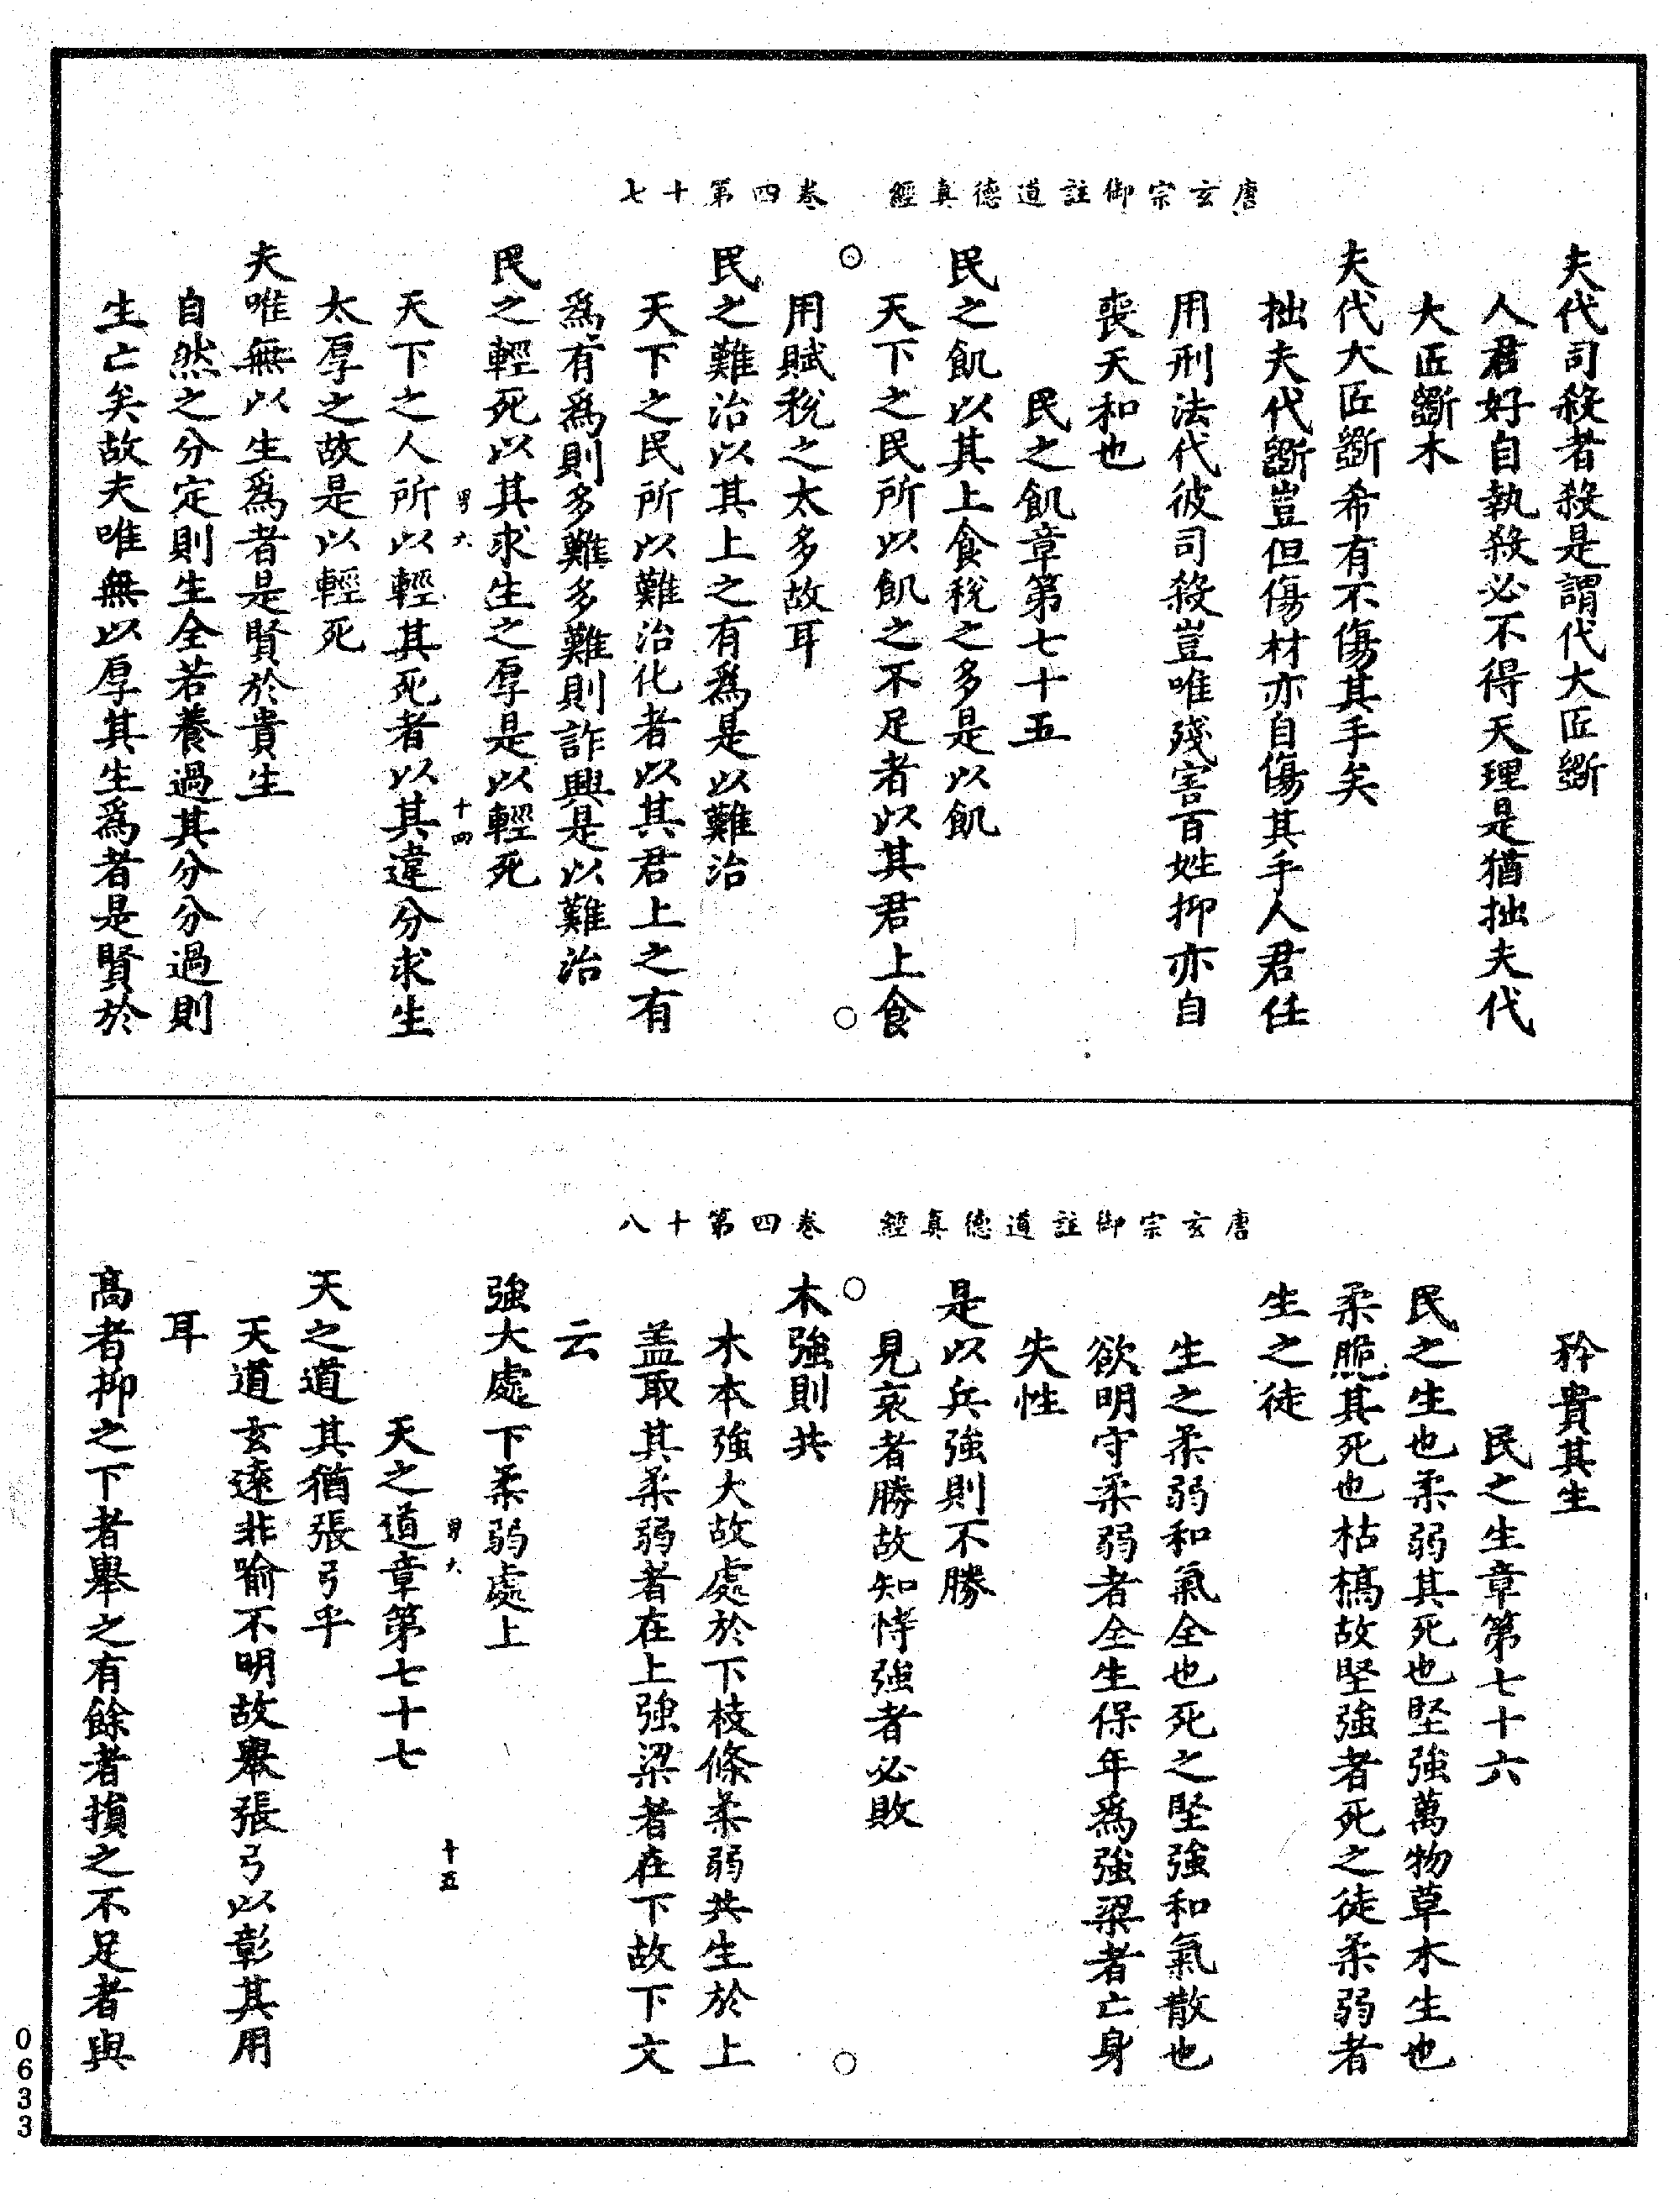 唐玄宗御註道德真經　卷四第十七
夫代司殺者殺是謂代大匠斵
人君好自執殺必不得天理是猶拙夫代
大匠斵木
夫代大匠斵希有不傷其手矣
拙夫代斵豈但傷材亦自傷其手人君任
用刑法代彼司殺豈唯殘害百姓抑亦自
喪天和也
民之飢章第七十五
民之飢以其上食稅之多是以飢
天下之民所以飢之不足者以其君上食
用賦稅之太多故耳
民之難治以其上之有爲是以難治
天下之民所以難治化者以其君上之有
爲有爲則多難多難則詐興是以難治
民之輕死以其求生之厚是以輕死
十四
天下之人所以輕其死者以其違分求生
太厚之故是以輕死
夫唯無以生爲者是賢於貴生
自然之分定則生全若養過其分分過則
生亡矣故夫唯無以厚其生爲者是賢於
唐玄宗御註道德真經　卷四第十八
矜貴其生
民之生章第七十六
民之生也柔弱其死也堅強萬物草木生也
柔脆其死也枯槁故堅強者死之徒柔弱者
生之徒
生之柔弱和氣全也死之堅強和氣散也
欲明守柔弱者全生保年爲強梁者亡身
失性
是以兵強則不勝
見哀者勝故知恃強者必敗
木強則共
木本強大故處於下枝條柔弱共生於上
盖取其柔弱者在上強梁者在下故下文
云
強大處下柔弱處上
十五
天之道章第七十七
天之道其猶張弓乎
天道玄遠非喻不明故舉張弓以彰其用
耳
高者抑之下者舉之有餘者損之不足者與
0633